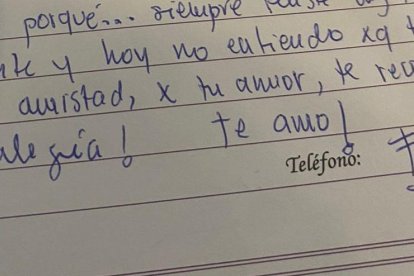 porqué... siempre
y hoy no entiendo xq
amistad, x tu amor, te
alegría! te amo!
Teléfono: